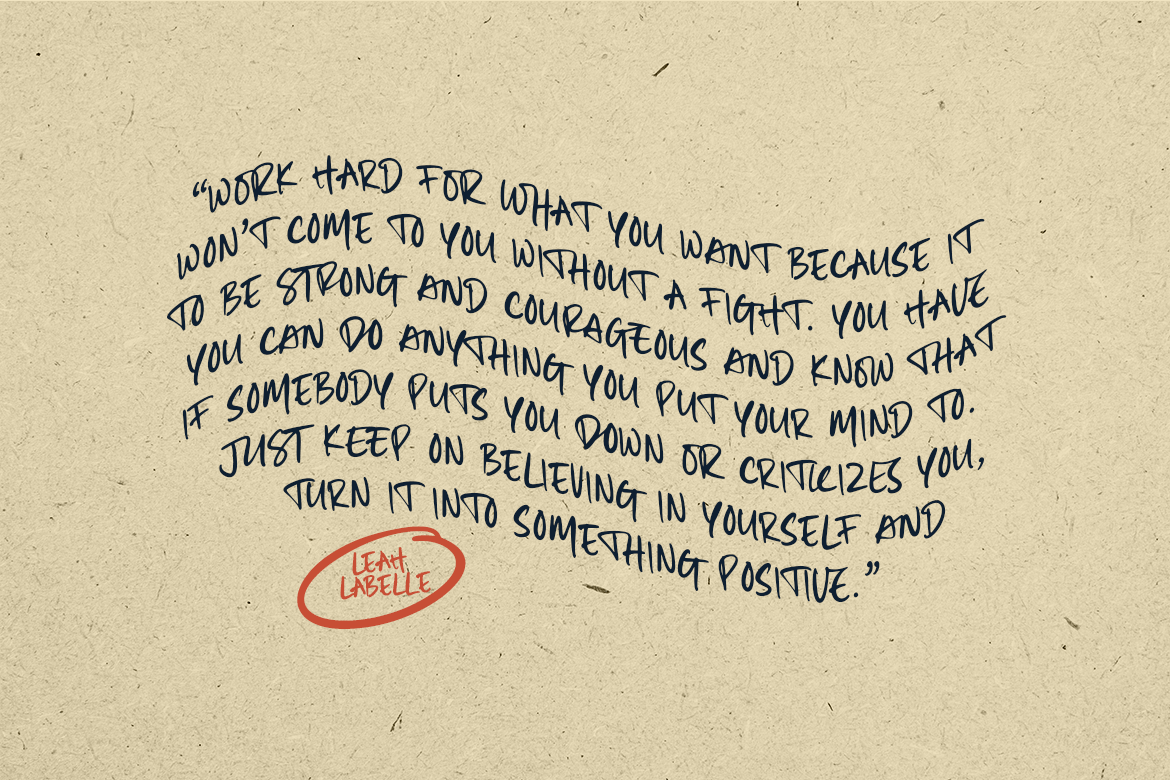 “WORK HARD FOR WHAT YOU WANT BECAUSE IT
WON’T COME TO YOU WITHOUT A FIGHT. YOU HAVE
TO BE STRONG AND COURAGEOUS AND KNOW THAT
YOU CAN DO ANYTHING YOU PUT YOUR MIND TO.
IF SOMEBODY PUTS YOU DOWN OR CRITICIZES YOU,
JUST KEEP ON BELIEVING IN YOURSELF AND
TURN IT INTO SOMETHING POSITIVE.”
LEAH
LABELLE